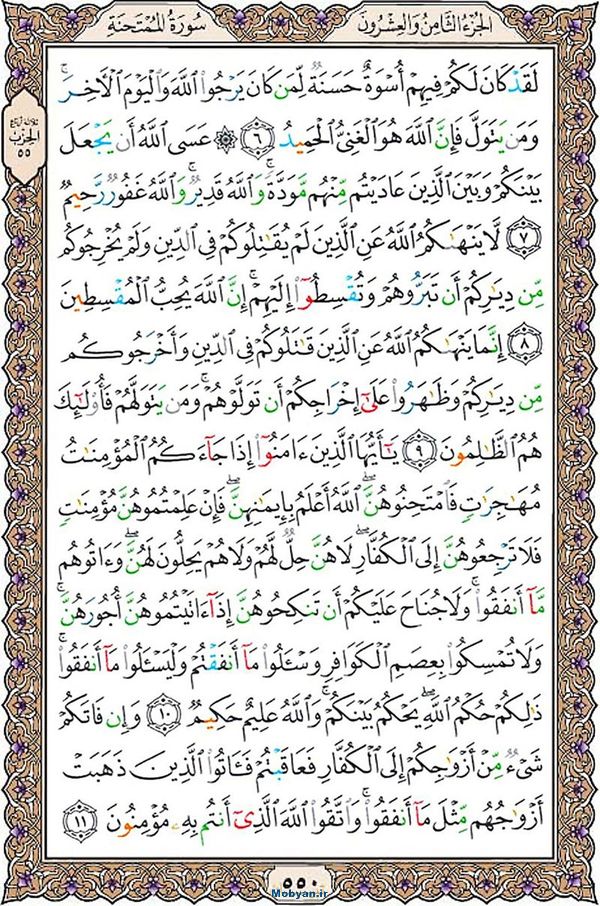 الجزء الثامن والعشرون
سورة الممتحنة
ثلاثة أرباع
الحزب
٥٥
لَقَدْ كَانَ لَكُمْ فِيهِمْ أُسْوَةٌ حَسَنَةٌ لِّمَن كَانَ يَرْجُوا۟ ٱللَّهَ وَٱلْيَوْمَ ٱلْـَٔاخِرَ ۚ
وَمَن يَتَوَلَّ فَإِنَّ ٱللَّهَ هُوَ ٱلْغَنِىُّ ٱلْحَمِيدُ ﴿٦﴾ ۞ عَسَى ٱللَّهُ أَن يَجْعَلَ
بَيْنَكُمْ وَبَيْنَ ٱلَّذِينَ عَادَيْتُم مِّنْهُم مَّوَدَّةً ۚ وَٱللَّهُ قَدِيرٌ ۚ وَٱللَّهُ غَفُورٌ رَّحِيمٌ
﴿٧﴾ لَّا يَنْهَىٰكُمُ ٱللَّهُ عَنِ ٱلَّذِينَ لَمْ يُقَـٰتِلُوكُمْ فِى ٱلدِّينِ وَلَمْ يُخْرِجُوكُم
مِّن دِيَـٰرِكُمْ أَن تَبَرُّوهُمْ وَتُقْسِطُوٓا۟ إِلَيْهِمْ ۚ إِنَّ ٱللَّهَ يُحِبُّ ٱلْمُقْسِطِينَ
﴿٨﴾ إِنَّمَا يَنْهَىٰكُمُ ٱللَّهُ عَنِ ٱلَّذِينَ قَـٰتَلُوكُمْ فِى ٱلدِّينِ وَأَخْرَجُوكُم
مِّن دِيَـٰرِكُمْ وَظَـٰهَرُوا۟ عَلَىٰٓ إِخْرَاجِكُمْ أَن تَوَلَّوْهُمْ ۚ وَمَن يَتَوَلَّهُمْ فَأُو۟لَـٰٓئِكَ
هُمُ ٱلظَّـٰلِمُونَ ﴿٩﴾ يَـٰٓأَيُّهَا ٱلَّذِينَ ءَامَنُوٓا۟ إِذَا جَآءَكُمُ ٱلْمُؤْمِنَـٰتُ
مُهَـٰجِرَٰتٍ فَٱمْتَحِنُوهُنَّ ۖ ٱللَّهُ أَعْلَمُ بِإِيمَـٰنِهِنَّ ۖ فَإِنْ عَلِمْتُمُوهُنَّ مُؤْمِنَـٰتٍ
فَلَا تَرْجِعُوهُنَّ إِلَى ٱلْكُفَّارِ ۖ لَا هُنَّ حِلٌّ لَّهُمْ وَلَا هُمْ يَحِلُّونَ لَهُنَّ ۖ وَءَاتُوهُم
مَّآ أَنفَقُوا۟ ۚ وَلَا جُنَاحَ عَلَيْكُمْ أَن تَنكِحُوهُنَّ إِذَآ ءَاتَيْتُمُوهُنَّ أُجُورَهُنَّ ۚ
وَلَا تُمْسِكُوا۟ بِعِصَمِ ٱلْكَوَافِرِ وَسْـَٔلُوا۟ مَآ أَنفَقْتُمْ وَلْيَسْـَٔلُوا۟ مَآ أَنفَقُوا۟ ۚ
ذَٰلِكُمْ حُكْمُ ٱللَّهِ ۖ يَحْكُمُ بَيْنَكُمْ ۚ وَٱللَّهُ عَلِيمٌ حَكِيمٌ ﴿١٠﴾ وَإِن فَاتَكُمْ
شَىْءٌ مِّنْ أَزْوَٰجِكُمْ إِلَى ٱلْكُفَّارِ فَعَاقَبْتُمْ فَـَٔاتُوا۟ ٱلَّذِينَ ذَهَبَتْ
أَزْوَٰجُهُم مِّثْلَ مَآ أَنفَقُوا۟ ۚ وَٱتَّقُوا۟ ٱللَّهَ ٱلَّذِىٓ أَنتُم بِهِۦ مُؤْمِنُونَ ﴿١١﴾
٥٥٠
Mobyan.ir